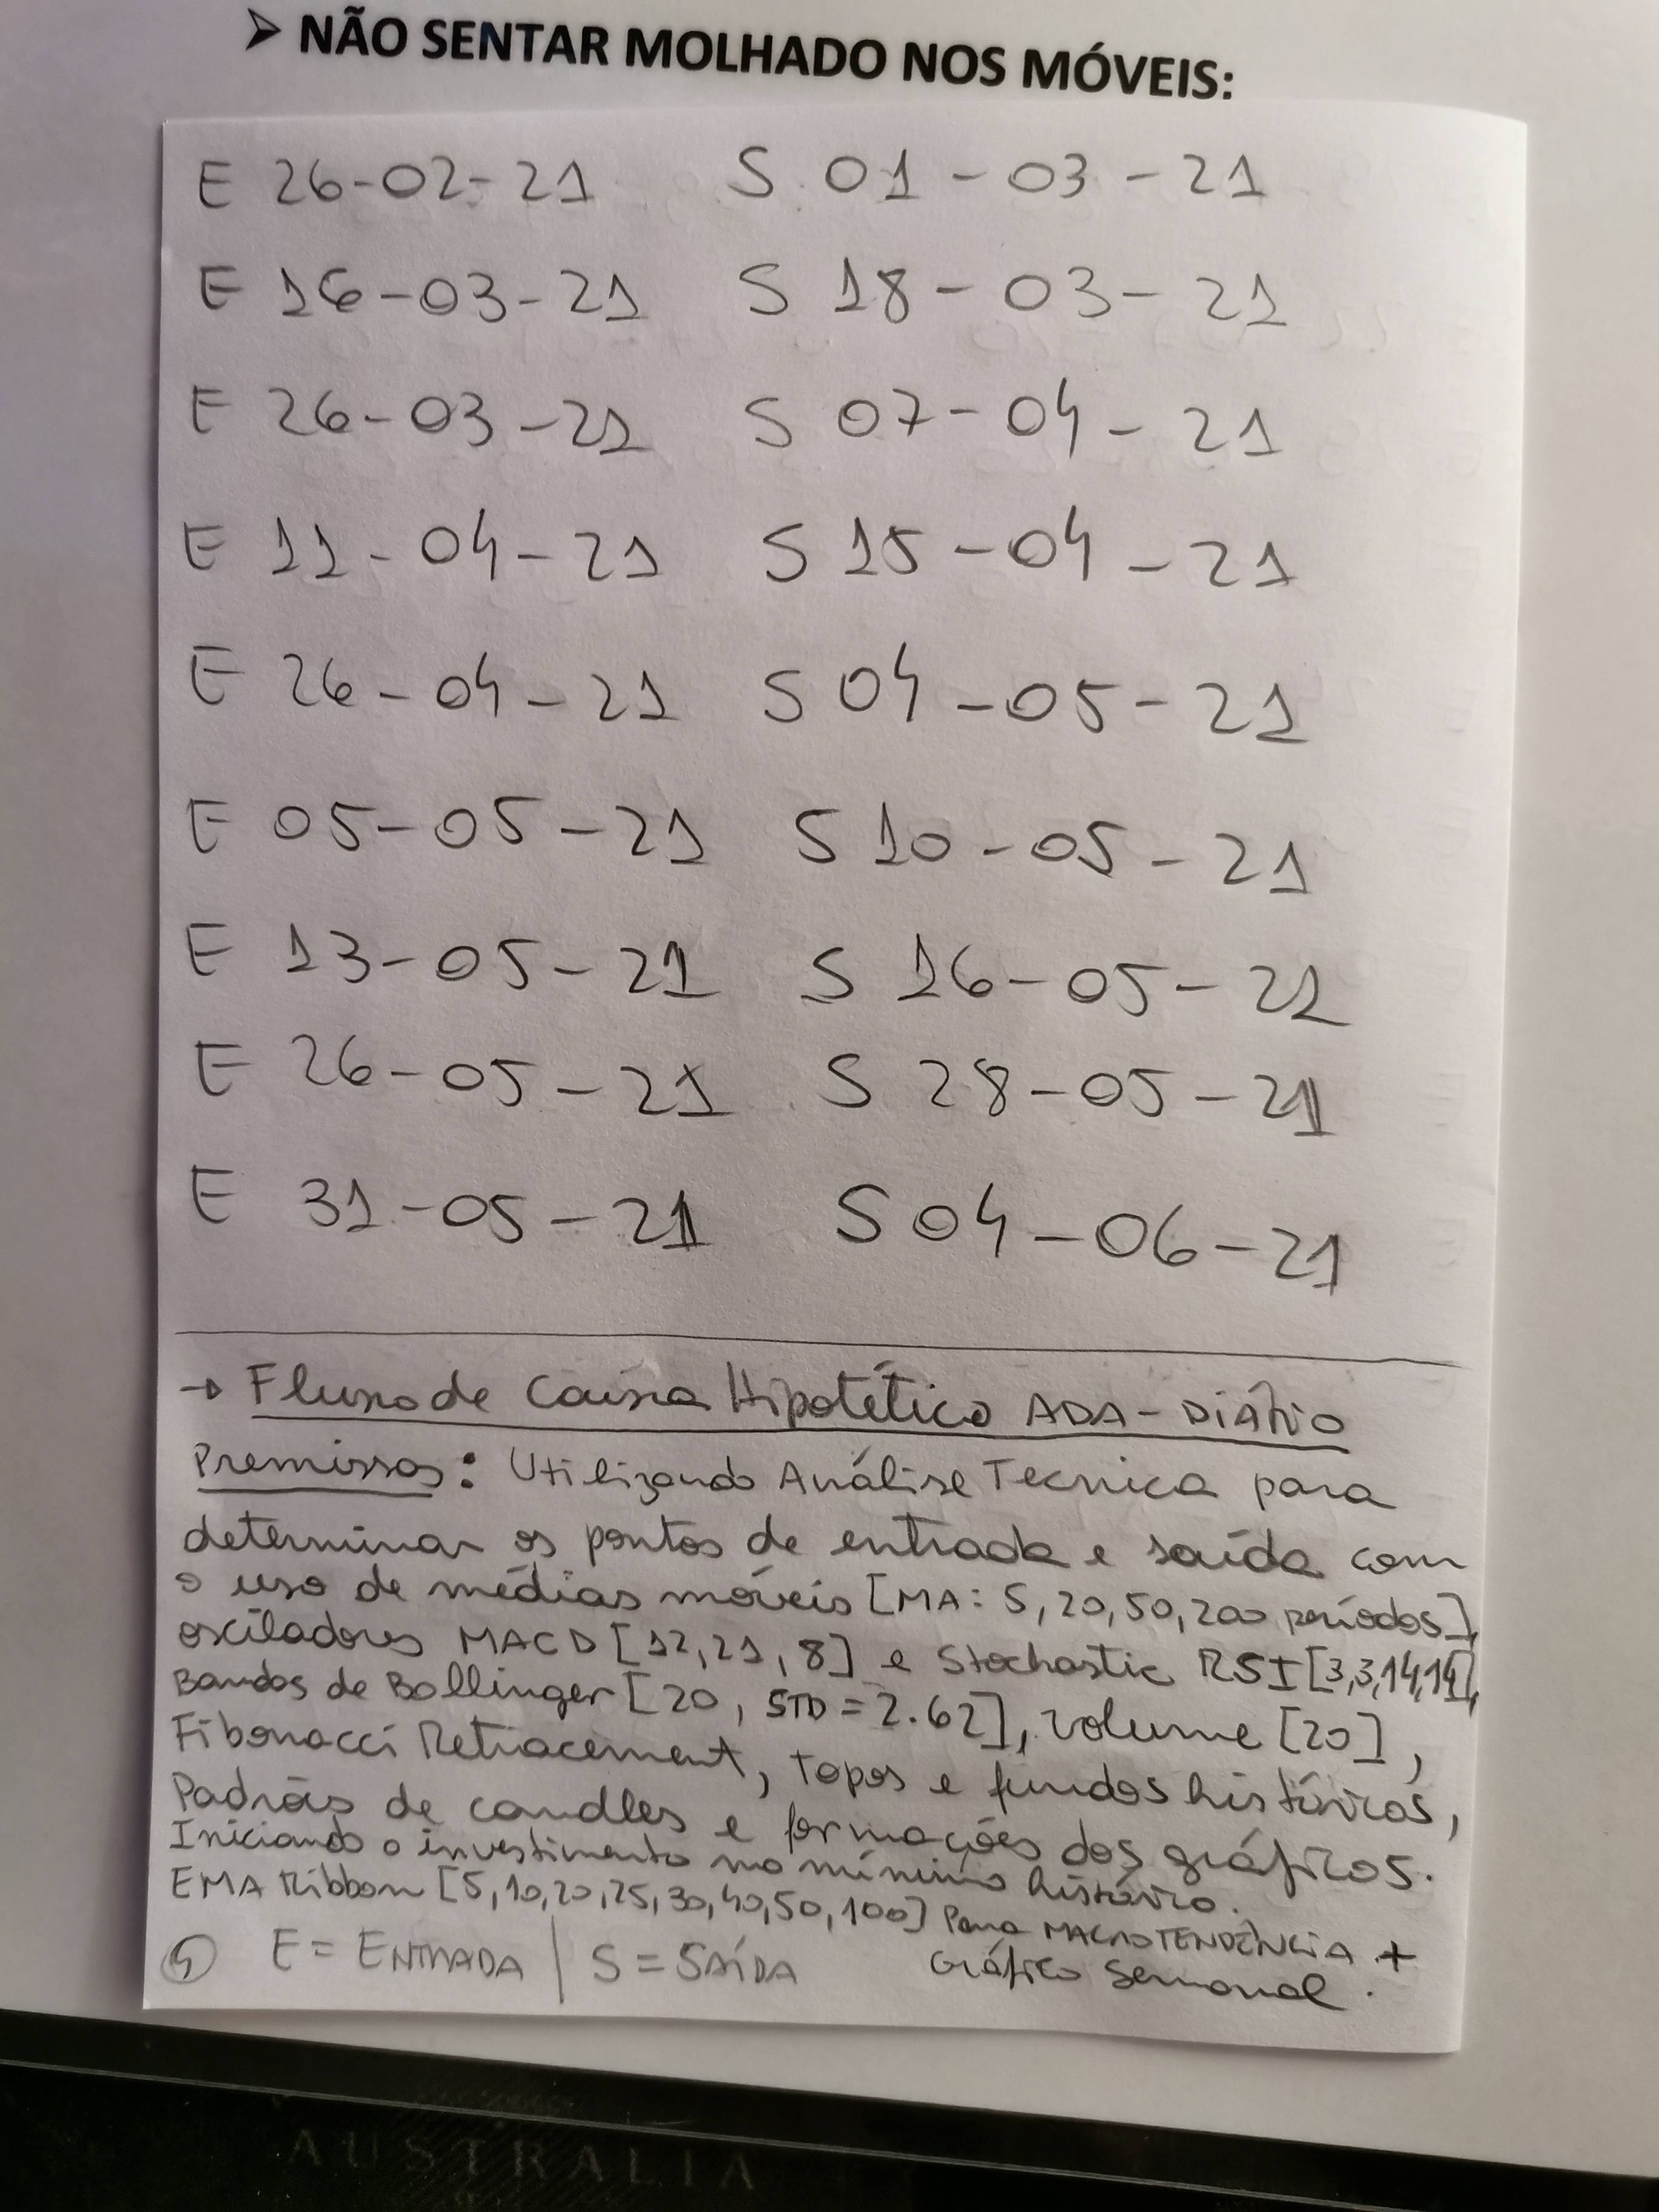 ➢ NÃO SENTAR MOLHADO NOS MÓVEIS:
E 26-02-21 S 01-03-21
E 16-03-21 S 18-03-21
E 26-03-21 S 07-04-21
E 11-04-21 S 15-04-21
E 26-04-21 S 04-05-21
E 05-05-21 S 10-05-21
E 13-05-21 S 16-05-21
E 26-05-21 S 28-05-21
E 31-05-21 S 04-06-21
→ Fluxo de Caixa Hipotético ADA - DIÁRIO
Premissas: Utilizando Análise Tecnica para
determinar os pontos de entrada e saída com
o uso de médias móveis [MA: 5, 20, 50, 200 períodos],
osciladores MACD [12, 21, 8] e Stochastic RSI [3,3,14,14],
Bandas de Bollinger [20, STD = 2.62], volume [20],
Fibonacci Retracement, Topos e fundos históricos,
Padrões de candles e formações dos gráficos.
Iniciando o investimento no mínimo histórico.
EMA Ribbon [5, 10, 20, 25, 30, 40, 50, 100] Para MACROTENDÊNCIA +
Gráfico Semanal.
E = ENTRADA | S = SAÍDA
AUSTRALIA